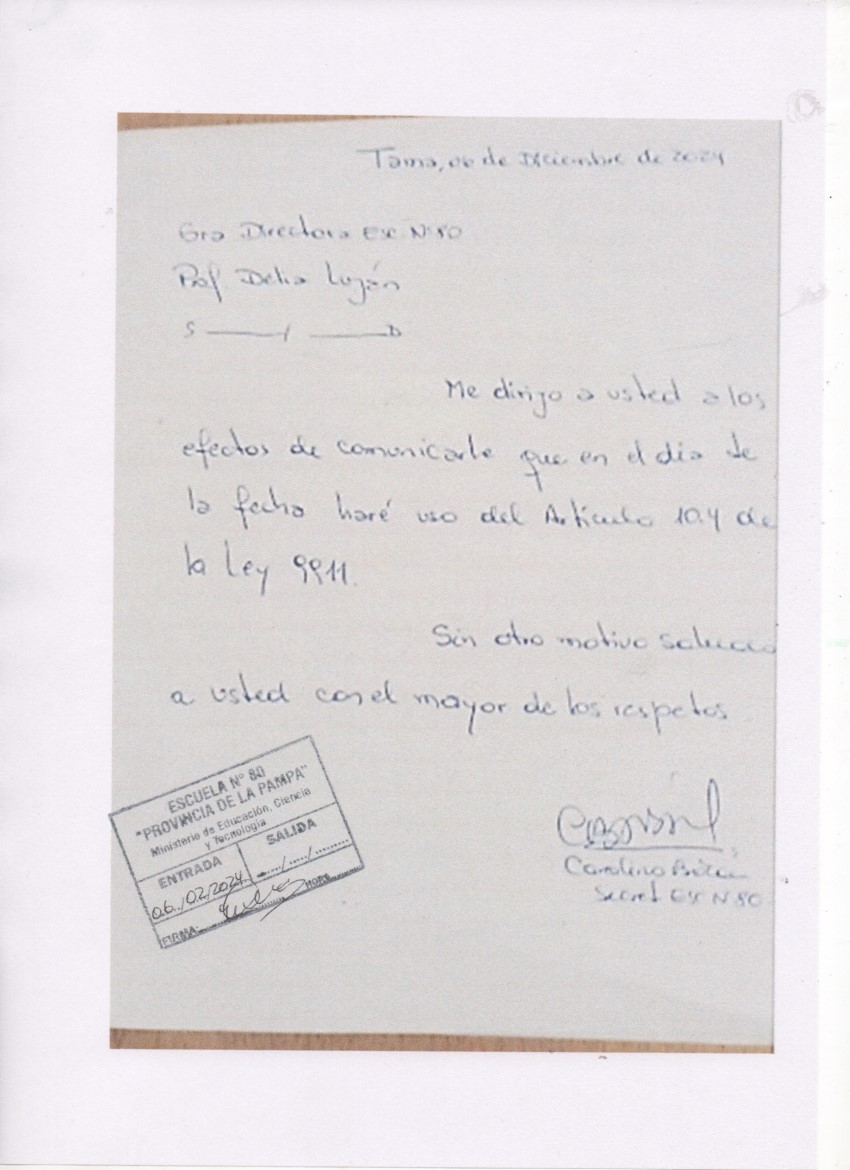 Tama, 06 de Diciembre de 2024
Sra Directora Esc. Nº 80
Prof Delia Luján
S ——/ ——D
Me dirijo a usted a los
efectos de comunicarle que en el día de
la fecha haré uso del Artículo 10.4 de
la Ley 9911.
Sin otro motivo saludo
a usted con el mayor de los respetos
ESCUELA N° 80
"PROVINCIA DE LA PAMPA"
Ministerio de Educación, Ciencia
y Tecnología
ENTRADA
SALIDA
06/02/2024
...../...../.....
FIRMA:
HORA
Carolina
Secret Esc Nº 80